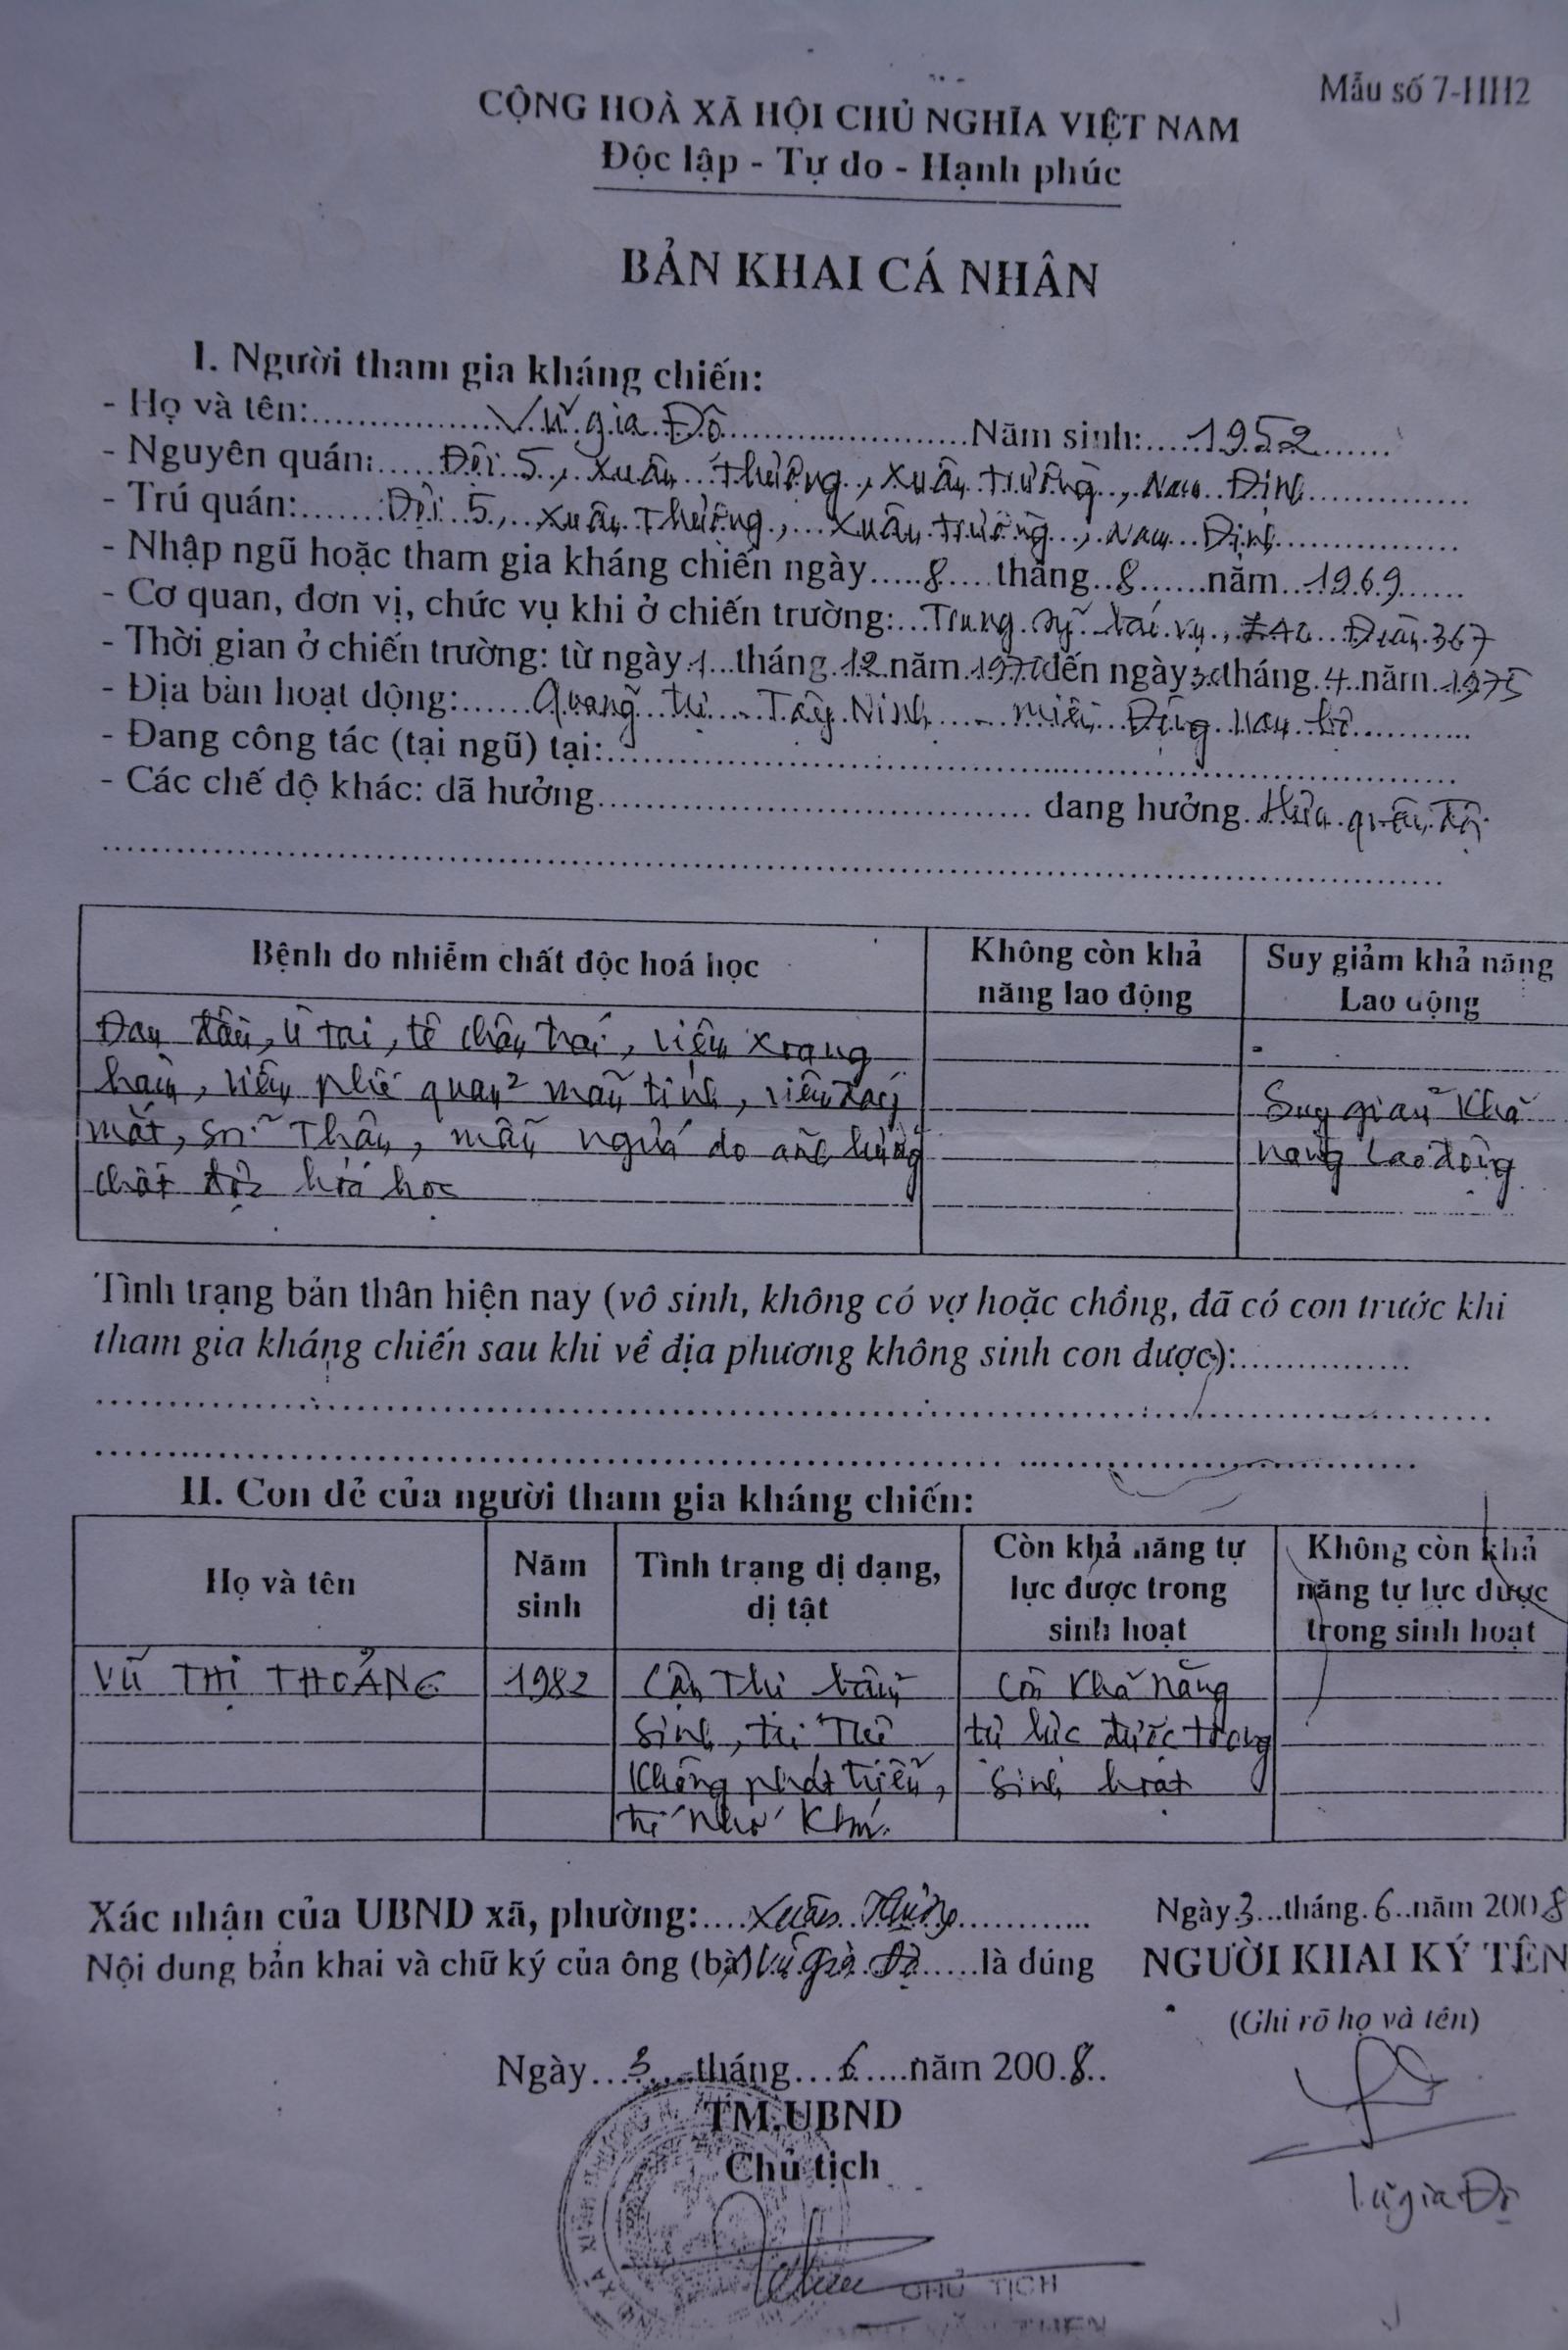 Mẫu số 7-HH2
CỘNG HOÀ XÃ HỘI CHỦ NGHĨA VIỆT NAM
Độc lập - Tự do - Hạnh phúc
BẢN KHAI CÁ NHÂN
I. Người tham gia kháng chiến:
- Họ và tên: Vũ gia Độ Năm sinh: 1952
- Nguyên quán: Đội 5, Xuân Thượng, Xuân trường, Nam Định
- Trú quán: Đội 5, Xuân Thượng, Xuân trường, Nam Định
- Nhập ngũ hoặc tham gia kháng chiến ngày 8 tháng 8 năm 1969
- Cơ quan, đơn vị, chức vụ khi ở chiến trường: Trung sỹ Đoàn 367
- Thời gian ở chiến trường: từ ngày 1 tháng 12 năm đến ngày 30 tháng 4 năm 1975
- Địa bàn hoạt động: Quảng trị - Tây Ninh - miền Đông nam bộ
- Đang công tác (tại ngũ) tại:
- Các chế độ khác: đã hưởng đang hưởng
Bệnh do nhiễm chất độc hoá học
Không còn khả năng lao động
Suy giảm khả năng Lao động
Đau đầu, ù tai, tê chân trái, viêm xoang
hàm, viêm phế quản mãn tính, viêm
mắt, sỏi Thận, mẩn ngứa do ảnh hưởng
chất độc hoá học
Suy giảm khả
năng lao động
Tình trạng bản thân hiện nay (vô sinh, không có vợ hoặc chồng, đã có con trước khi
tham gia kháng chiến sau khi về địa phương không sinh con được):
II. Con đẻ của người tham gia kháng chiến:
Họ và tên
Năm sinh
Tình trạng dị dạng, dị tật
Còn khả năng tự lực được trong sinh hoạt
Không còn khả năng tự lực được trong sinh hoạt
VŨ THỊ THOẢNG
1982
Cận Thị bẩm
sinh, trí Tuệ
Không phát triển,
trí nhớ kém.
Còn khả năng
tự lực được trong
sinh hoạt
Xác nhận của UBND xã, phường: Xuân Thượng
Nội dung bản khai và chữ ký của ông (bà) Vũ Gia Độ là đúng
Ngày 3 tháng 6 năm 2008
NGƯỜI KHAI KÝ TÊN
(Ghi rõ họ và tên)
Ngày 3 tháng 6 năm 2008
TM.UBND
Chủ tịch
Vũ gia Độ
CHỦ TỊCH